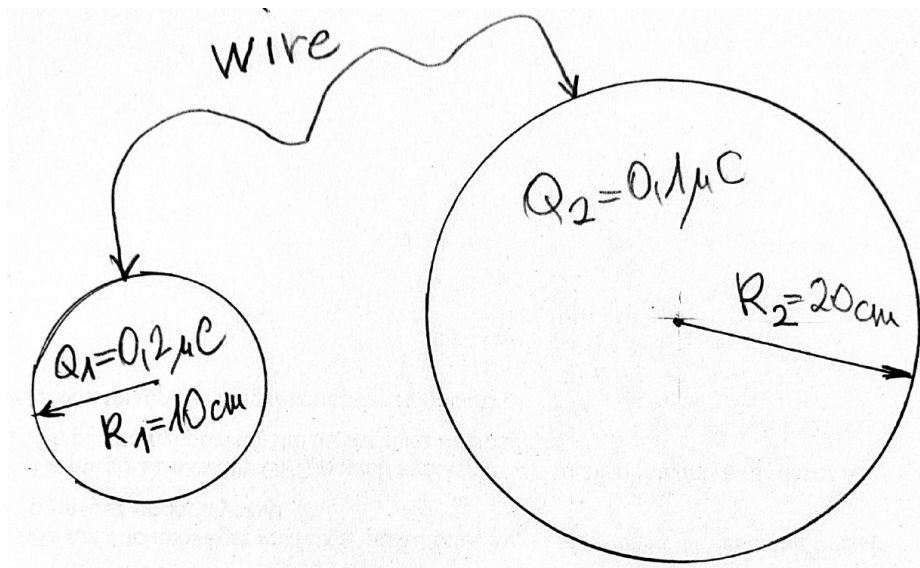 wire
Q₂=0,1μC
R₂=20cm
Q₁=0,2μC
R₁=10cm